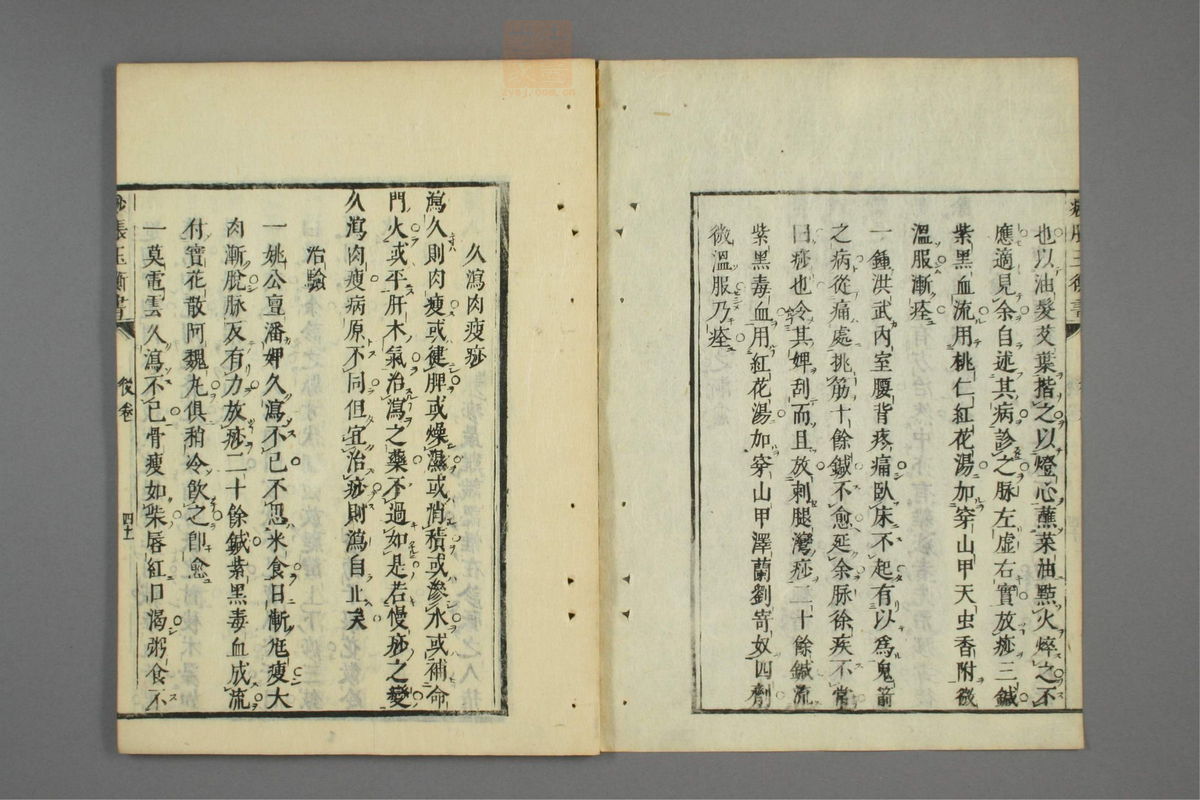 也以油髮艾葉揩之以燈心蘸菜油點火焠之不
應適見余自述其病診之脉左虛右實放痧三鍼
紫黑血流用桃仁紅花湯加穿山甲天虫香附微
溫服漸痊
一鍾洪武內室腰背疼痛臥床不起有以為鬼箭
之病從痛處挑筋十餘鍼不愈延余脉徐疾不常
曰痧也令其婢刮而且放刺腿灣痧二十餘鍼流
紫黑毒血用紅花湯加穿山甲澤蘭劉寄奴四劑
微溫服乃痊
久瀉肉瘦痧
瀉久則肉瘦或健脾或燥濕或消積或滲水或補命
門火或平肝木氣治瀉之藥不過如是若慢痧之變
久瀉肉瘦病原不同但宜治痧則瀉自止矣
治驗
一姚公亶潘妣久瀉不已不思米食日漸尪瘦大
肉漸脫脉反有力放痧二十餘鍼紫黑毒血成流
付寶花散阿魏丸俱稍冷飲之即愈
一莫電雲久瀉不已骨瘦如柴唇紅口渴粥食不
痧脹玉衡書 後卷 四十一
zysj.com.cn